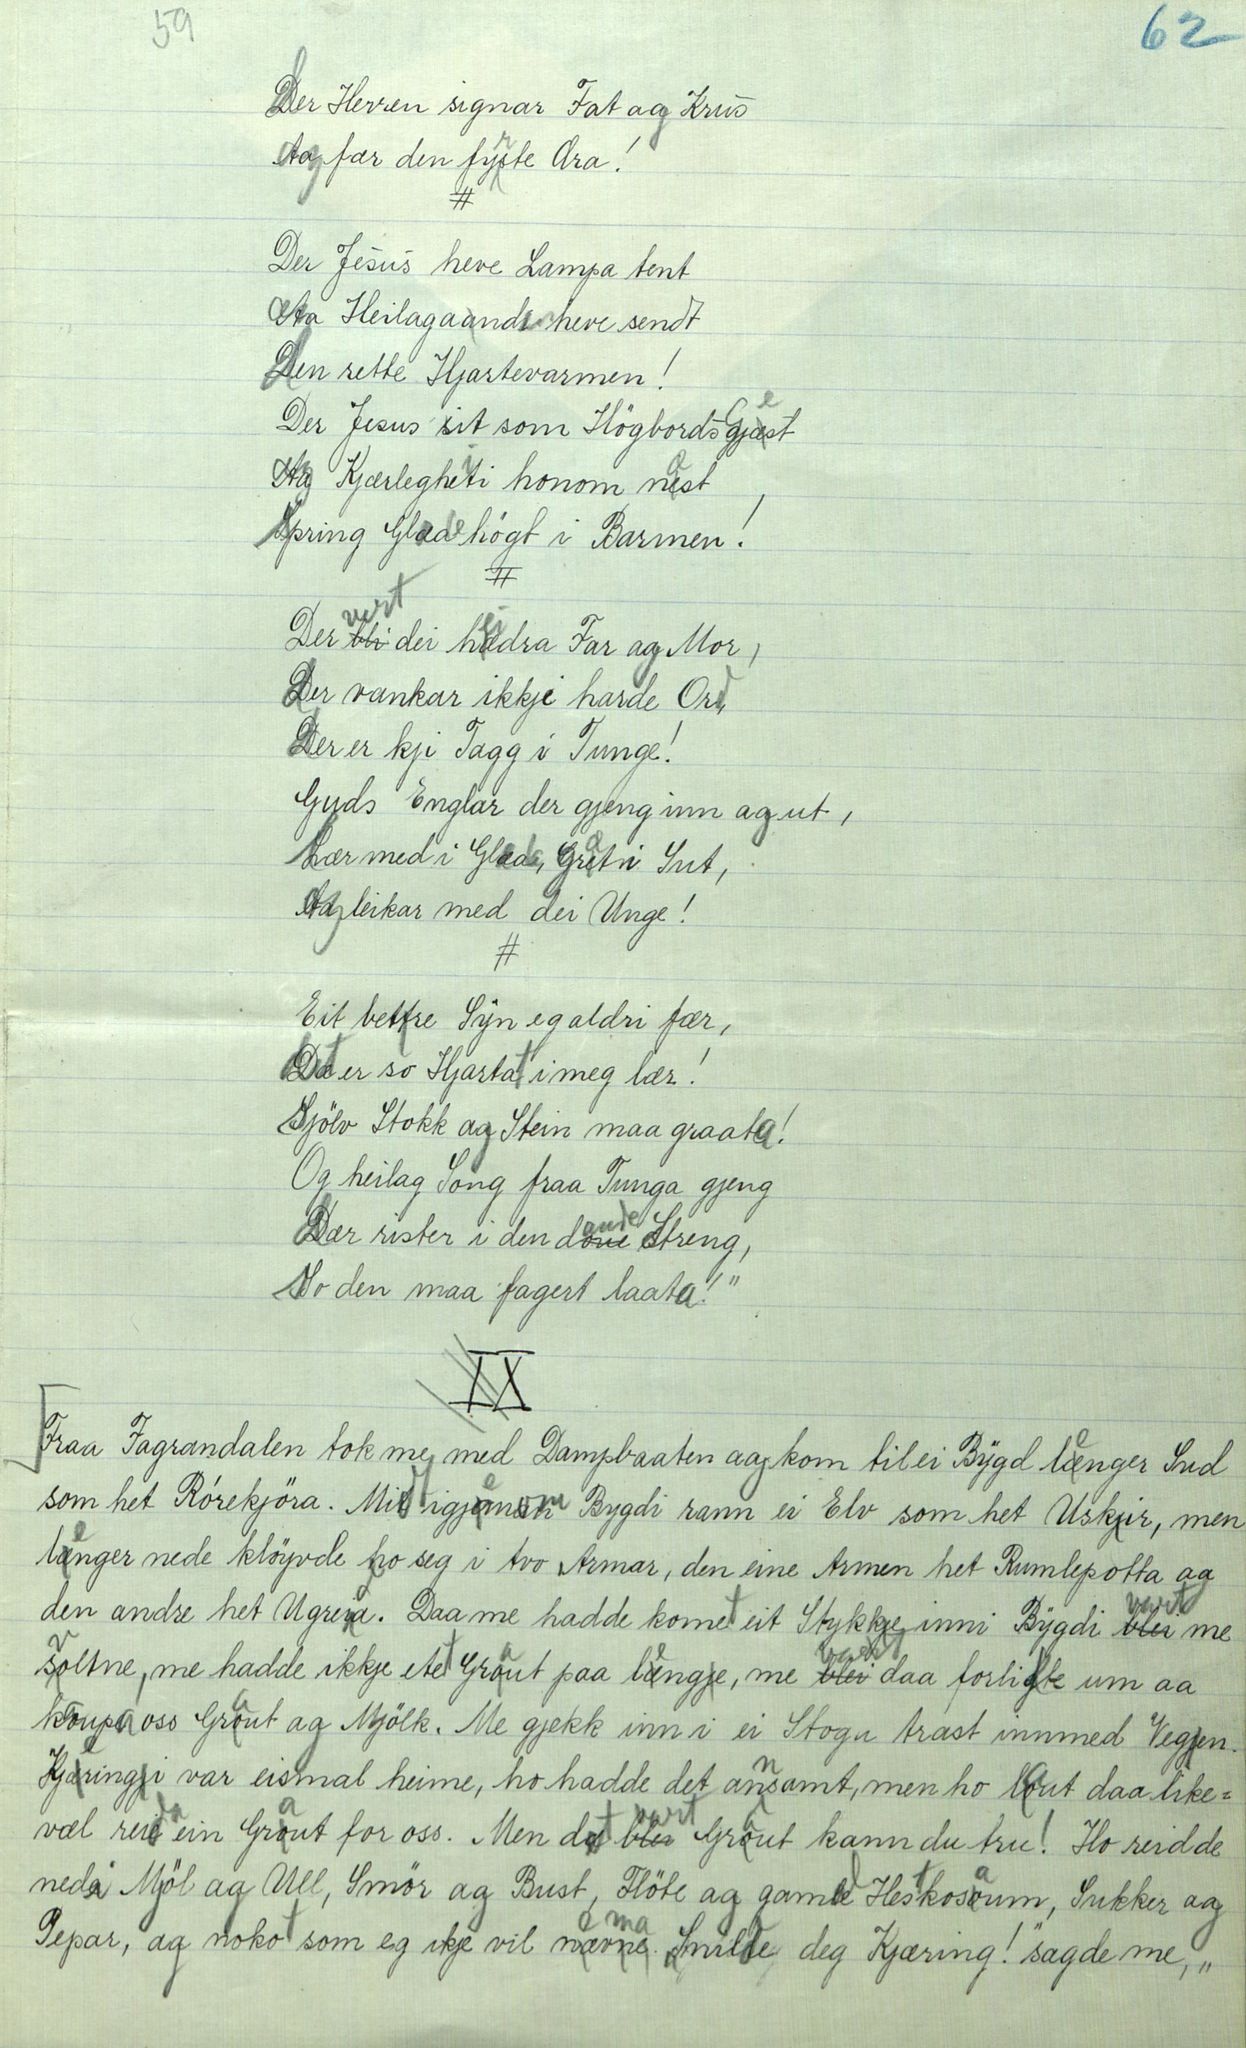 59
62
Der Herren signar Fat og Krus
og fær den fyrste Ara!
#
Der Jesus heve Lampa tent
Aa Heilagaand heve sendt
Den rette Hjartevarmen!
Der Jesus sit som Högbords Gjest
Og Kjærlegheiti honom næst,
Spring Glade högt i Barmen!
#
Der vert dei heidra Far og Mor,
Der vankar ikkje harde Ord,
Der er kji Tagg i Tunge!
Guds Englar der gjeng inn og ut,
Lær med i Glæde, Graat i Sut,
Og leikar med dei Unge!
#
Eit betre Syn eg aldri fær,
Det er so Hjartat i meg lær!
Sjölv Stokk og Stein maa graata!
Og heilag Song fraa Tunga gjeng
Dær rister i den daude Streng,
So den maa fagert laata!"
IX
Fraa Fagrandalen tok me med Dampbaaten og kom til ei Bygd lenger Sud
som het Rórekjöra. Midt igjenom Bygdi rann ei Elv som het Uskjir, men
lenger nede klöyvde ho seg i tvo Armar, den eine Armen het Rumlepotta og
den andre het Ugreia. Daa me hadde komet eit Stykkje inni Bygdi vart me
svoltne, me hadde ikkje etet Graut paa lenge, me vart daa forlikte um aa
kaupa oss Graut og Mjölk. Me gjekk inn i ei Stogu trast innmed Vegjen.
Kjeringi var eismal heime, ho hadde det annsamt, men ho laut daa like=
væl reida ein Graut for oss. Men det vart Graut kann du tru! Ho reidde
nedi Mjöl og Ull, Smör og Bust, Flöte og gamle Hestkosaum, Sukker og
Pepar, og nokot som eg ikje vil nemna. Snilde deg Kjæring!" sagde me, „